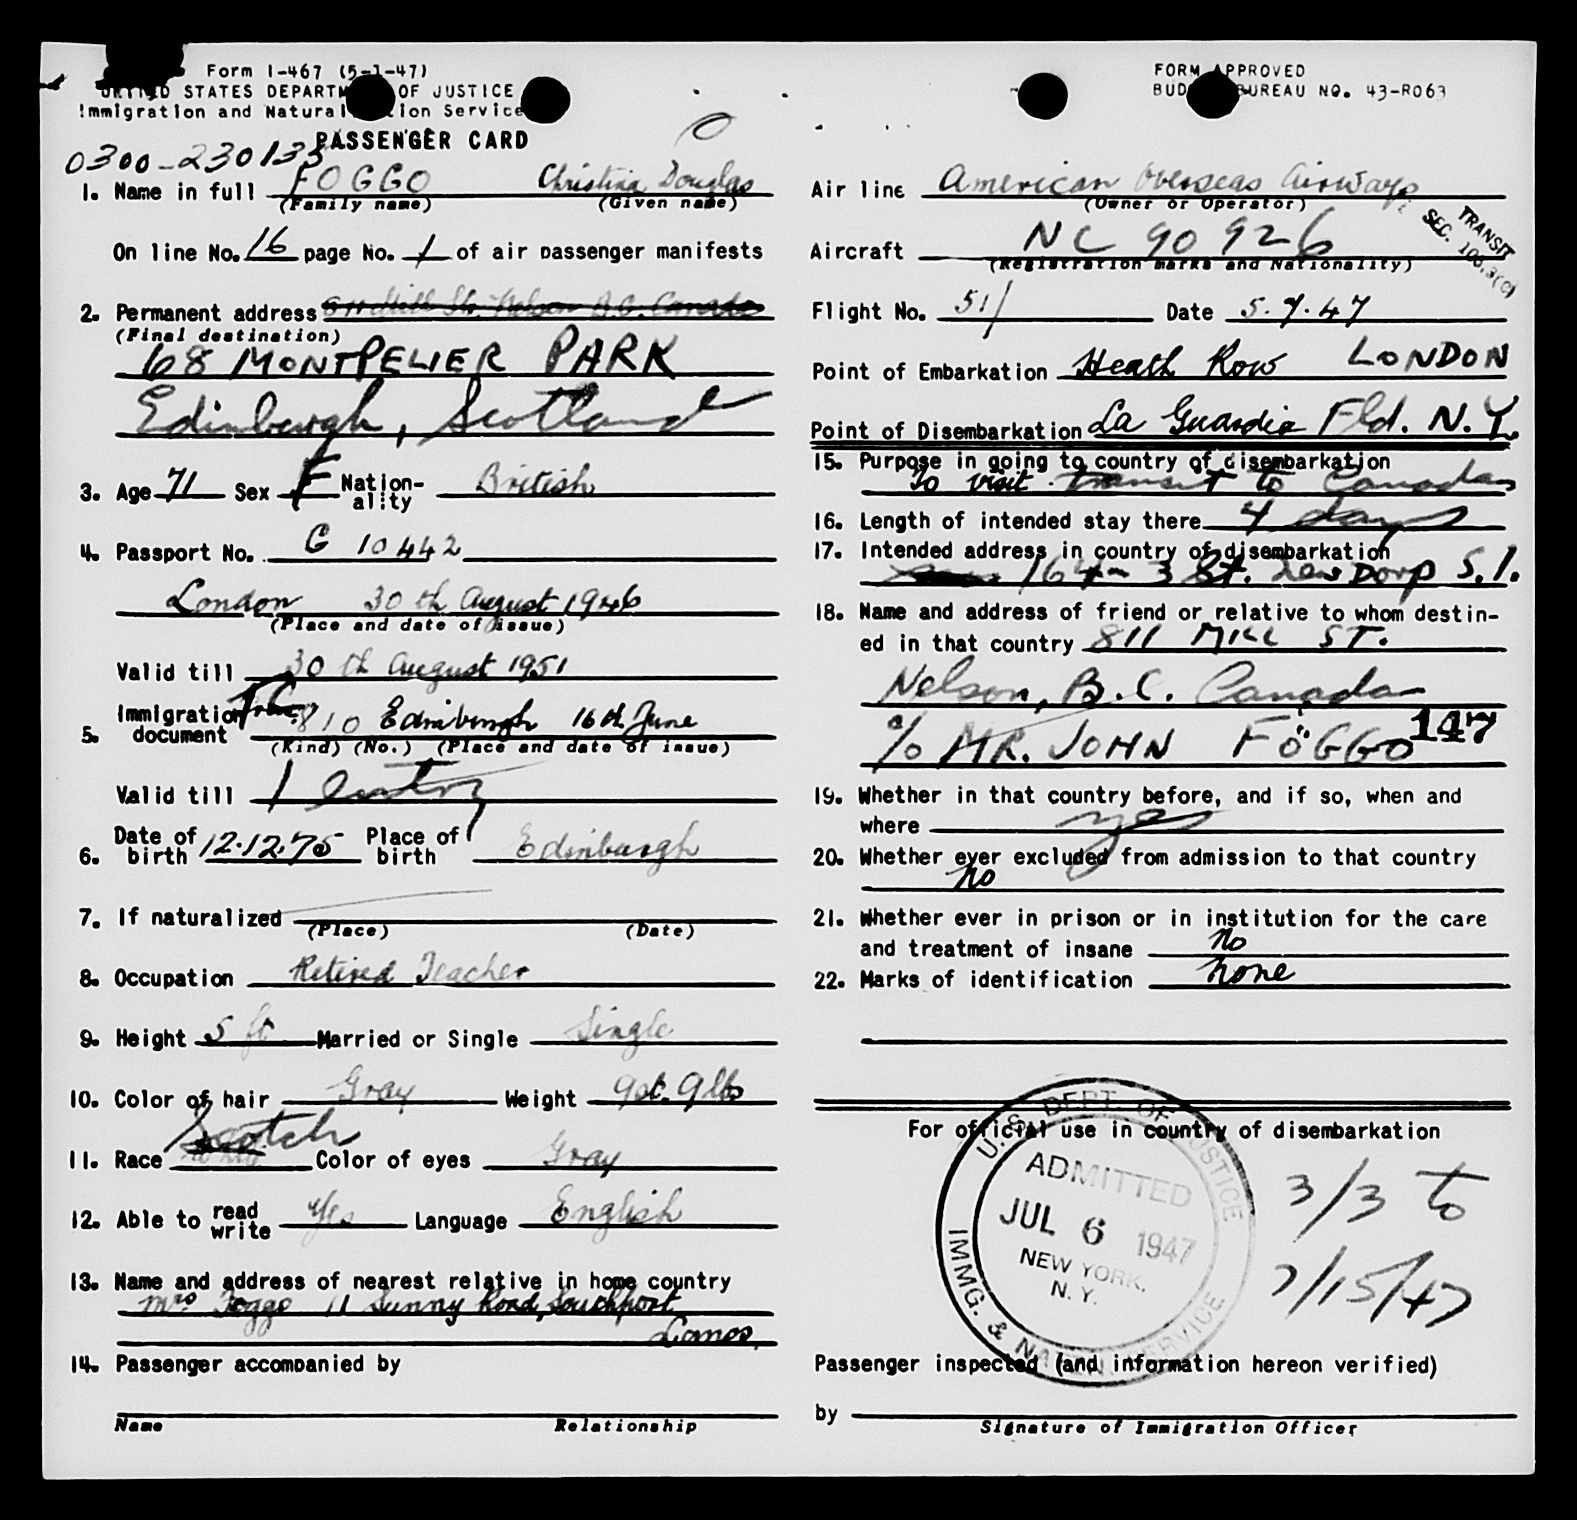 Form I-467 (5-1-47)
UNITED STATES DEPARTMENT OF JUSTICE
Immigration and Naturalization Service
PASSENGER CARD
0300-230133
1. Name in full FOGGO Christina Douglas
(Family name) (Given name)
On line No. 16 page No. 1 of air passenger manifests
2. Permanent address Mill St. Nelson B.C. Canada
(Final destination)
68 MONTPELIER PARK
Edinburgh, Scotland
3. Age 71 Sex F Nation-ality British
4. Passport No. C 10442
London 30th August 1946
(Place and date of issue)
Valid till 30th August 1951
5. Immigration document 810 Edinburgh 16th June
(Kind) (No.) (Place and date of issue)
Valid till 1 entry
6. Date of birth 12.12.75 Place of birth Edinburgh
7. If naturalized
(Place) (Date)
8. Occupation Retired Teacher
9. Height 5 ft Married or Single Single
10. Color of hair Gray Weight 9st. 9lbs
11. Race Scotch Color of eyes Gray
12. Able to read write Yes Language English
13. Name and address of nearest relative in home country
Mrs Foggo 11 Sunny Road, Southport
Lancs.
14. Passenger accompanied by
Name Relationship
FORM APPROVED
BUDGET BUREAU NO. 43-R063
Air line American Overseas Airways
(Owner or Operator)
TRANSIT
SEC.
Aircraft NC 90926
(Registration marks and Nationality)
Flight No. 51/ Date 5.7.47
Point of Embarkation Heath Row LONDON
Point of Disembarkation La Guardia Fld. N.Y.
15. Purpose in going to country of disembarkation
To visit transit to Canada
16. Length of intended stay there 4 days
17. Intended address in country of disembarkation
164 3 St. New Dorp S.I.
18. Name and address of friend or relative to whom destin-
ed in that country 811 MILL ST.
Nelson, B.C. Canada
c/o MR. JOHN FOGGO 147
19. Whether in that country before, and if so, when and
where yes
20. Whether ever excluded from admission to that country
No
21. Whether ever in prison or in institution for the care
and treatment of insane No
22. Marks of identification None
For official use in country of disembarkation
U.S. DEPT. OF JUSTICE
ADMITTED
JUL 6 1947
NEW YORK,
N.Y.
IMMG. & NATZN. SERVICE
3/3 to
7/15/47
Passenger inspected (and information hereon verified)
by
Signature of Immigration Officer